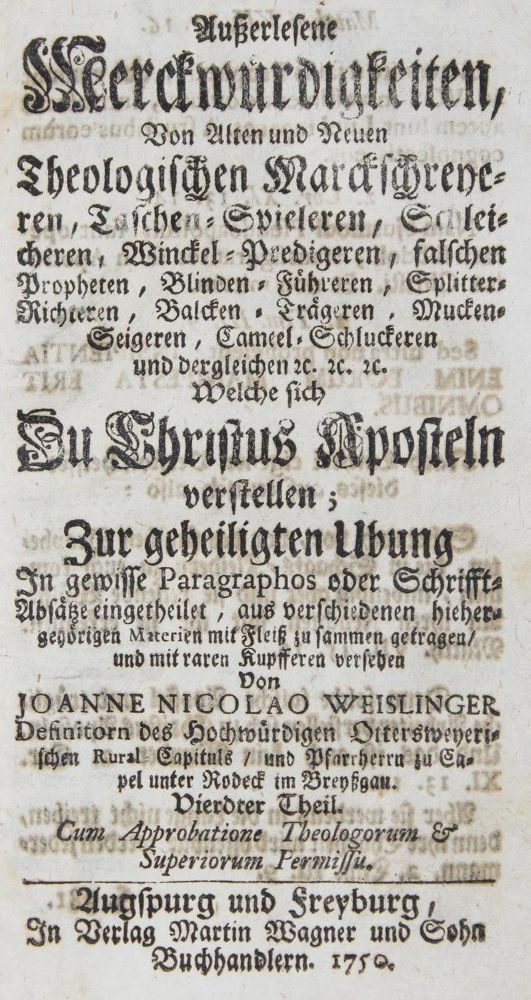 Außerlesene
Merckwürdigkeiten,
Von Alten und Neuen
Theologischen Marckschreye-
ren, Taschen-Spieleren, Schlei-
cheren, Winckel-Predigeren, falschen
Propheten, Blinden-Führeren, Splitter-
Richteren, Balcken-Trägeren, Mucken-
Seigeren, Cameel-Schluckeren
und dergleichen ꝛc. ꝛc. ꝛc.
Welche sich
Zu Christus Aposteln
verstellen;
Zur geheiligten Ubung
In gewisse Paragraphos oder Schrifft-
Absätze eingetheilet, aus verschiedenen hieher-
gehörigen Materien mit Fleiß zu sammen getragen/
und mit raren Kupfferen versehen
Von
JOANNE NICOLAO WEISLINGER
Definitorn des Hochwürdigen Ottersweyeri-
schen Rural-Capituls / und Pfarrherrn zu Ca-
pel unter Rodeck im Breyßgau.
Vierdter Theil.
Cum Approbatione Theologorum &
Superiorum Permissu.
Augspurg und Freyburg,
In Verlag Martin Wagner und Sohn
Buchhandlern. 1750.